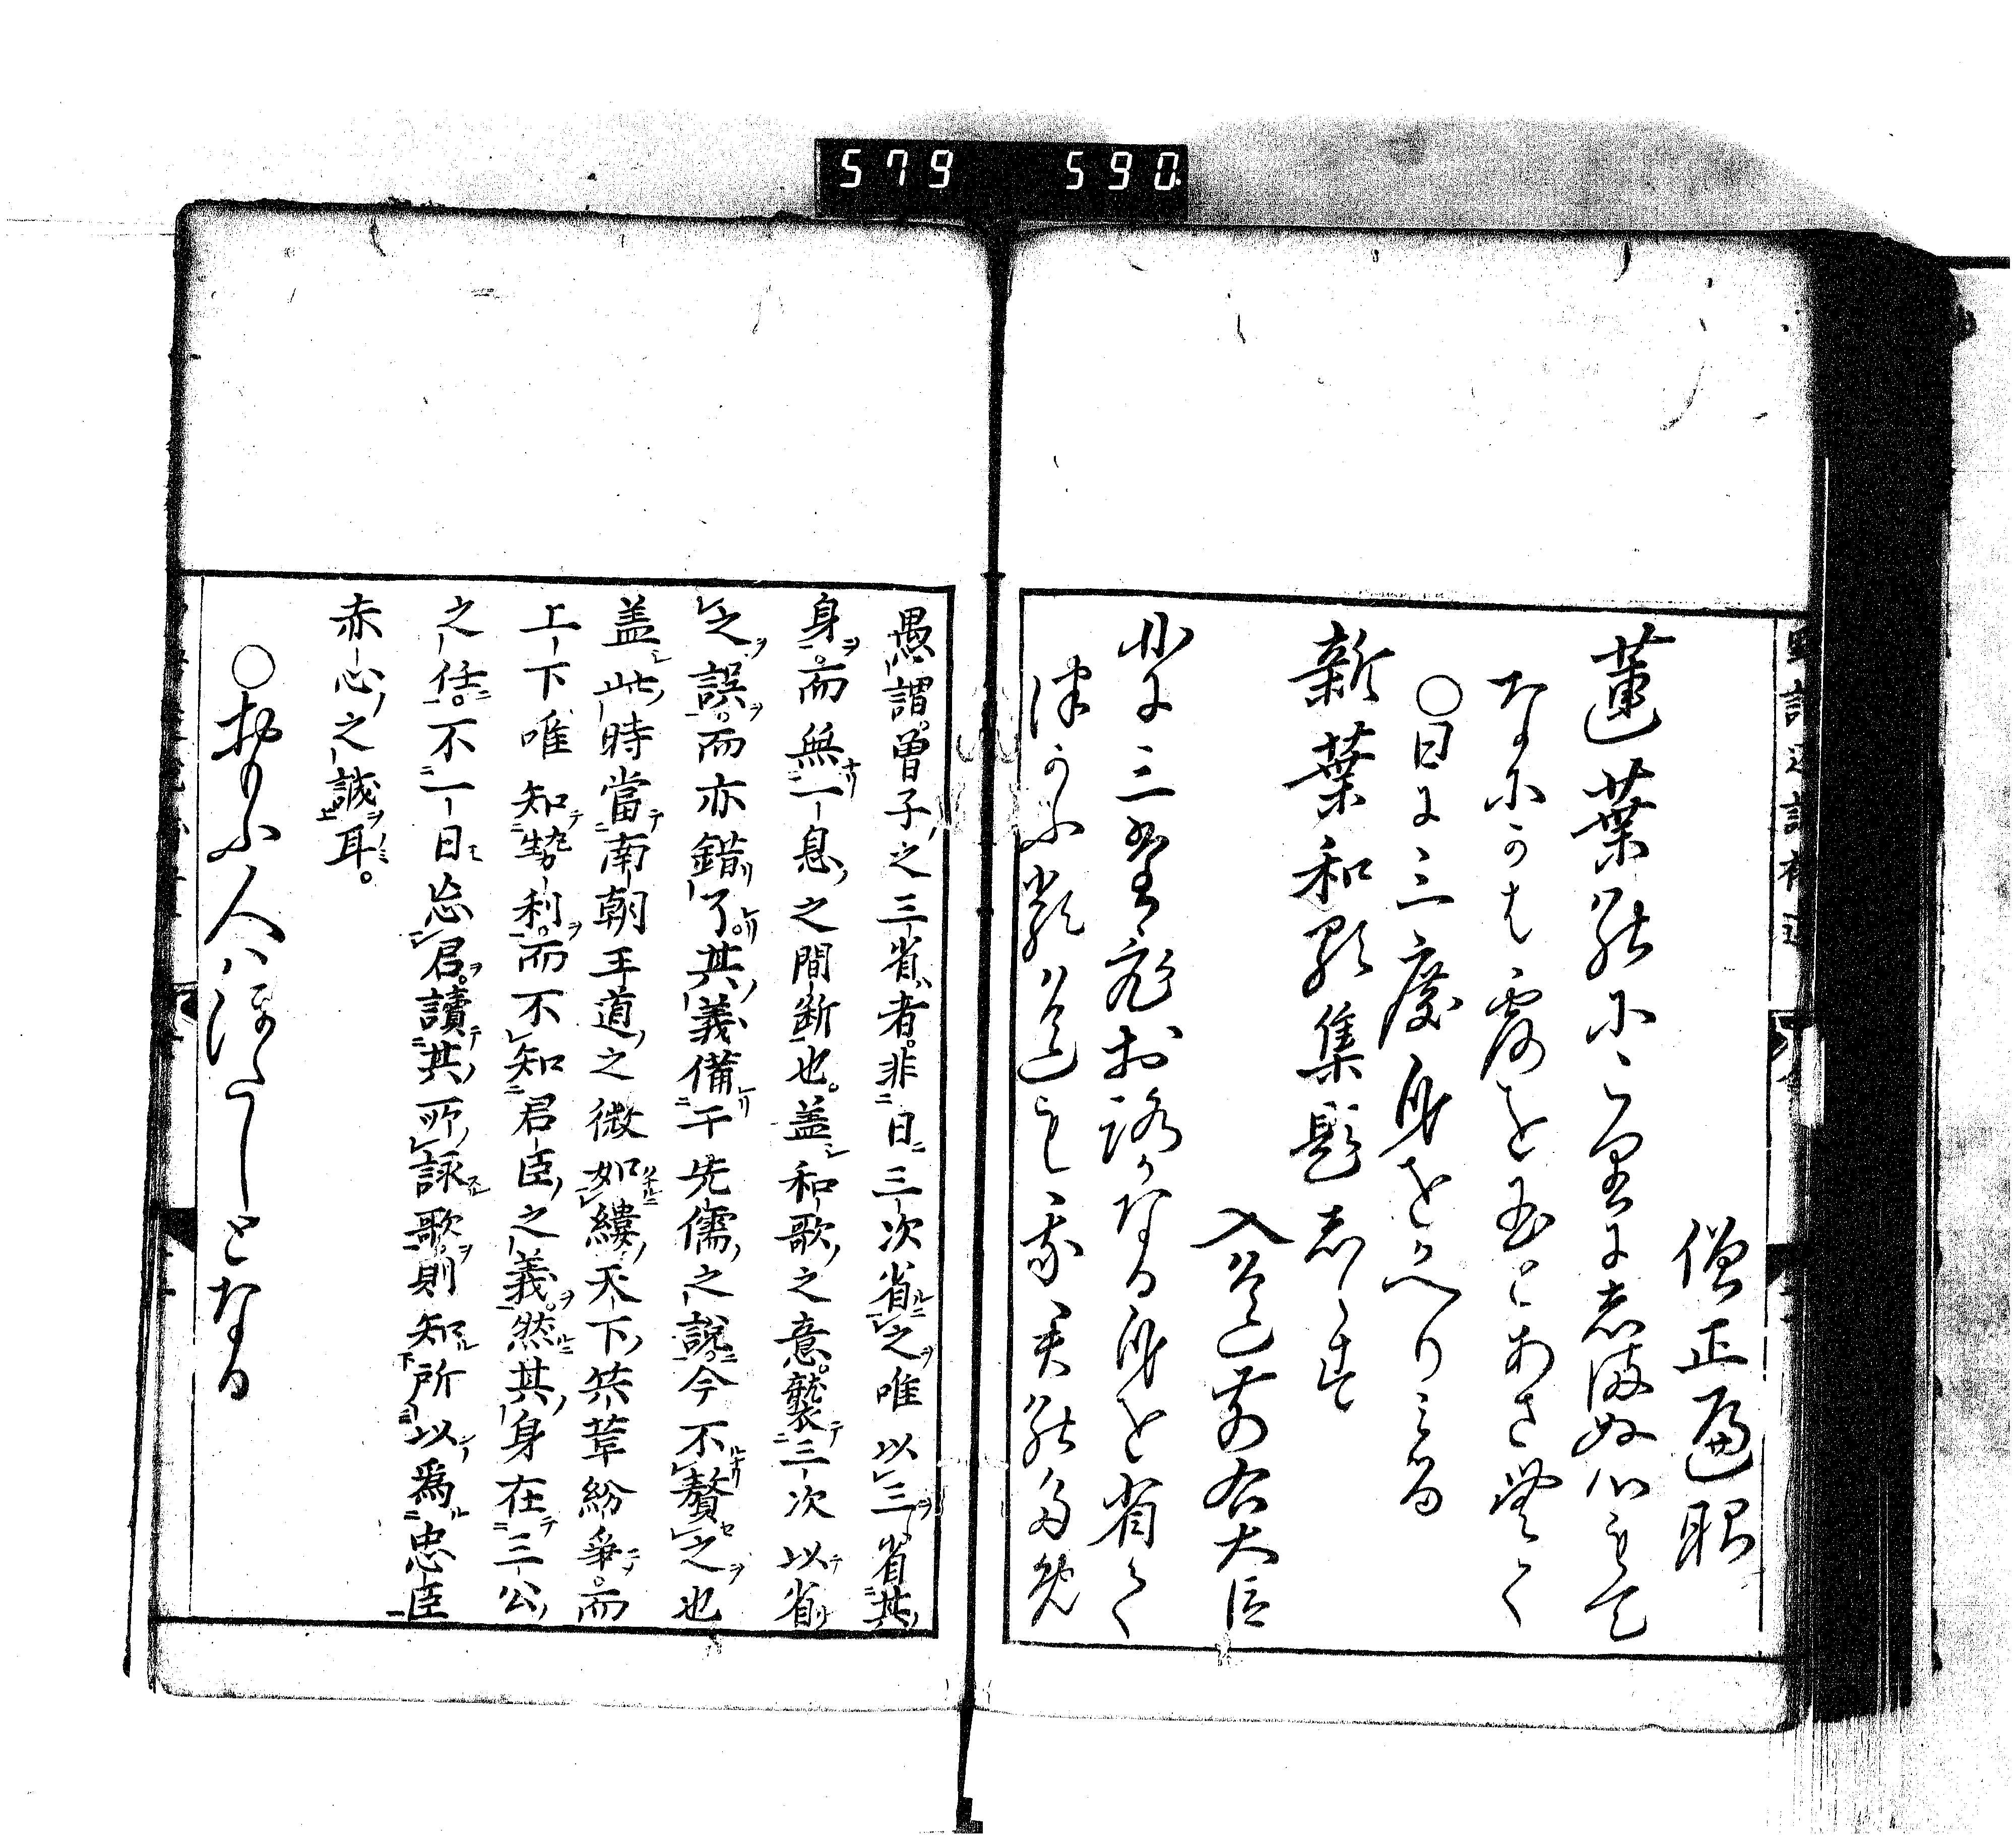 579 590
僧正遍昭
蓮葉能にこりにしまぬ心もて
なにかは露を玉とあさむく
○日に三度身をかへりみる
新葉和歌集題しらす
入道前右大臣
日に三たひおろかなる身を省て
つかふる道も我君のため
愚謂曽子之三省者非日三次省之唯以三省其
身而無一息之間断也盖和歌之意襲三次以省
之誤而亦錯了其義備于先儒之説今不贅之也
盖此時當南朝王道之微如縷天下共葦紛爭而
上下唯知勢利而不知君臣之義然其身在三公
之任不一日忘君讀其所詠歌則知所以爲忠臣
赤心之誠耳。
○おもふ人ハほたしとなる